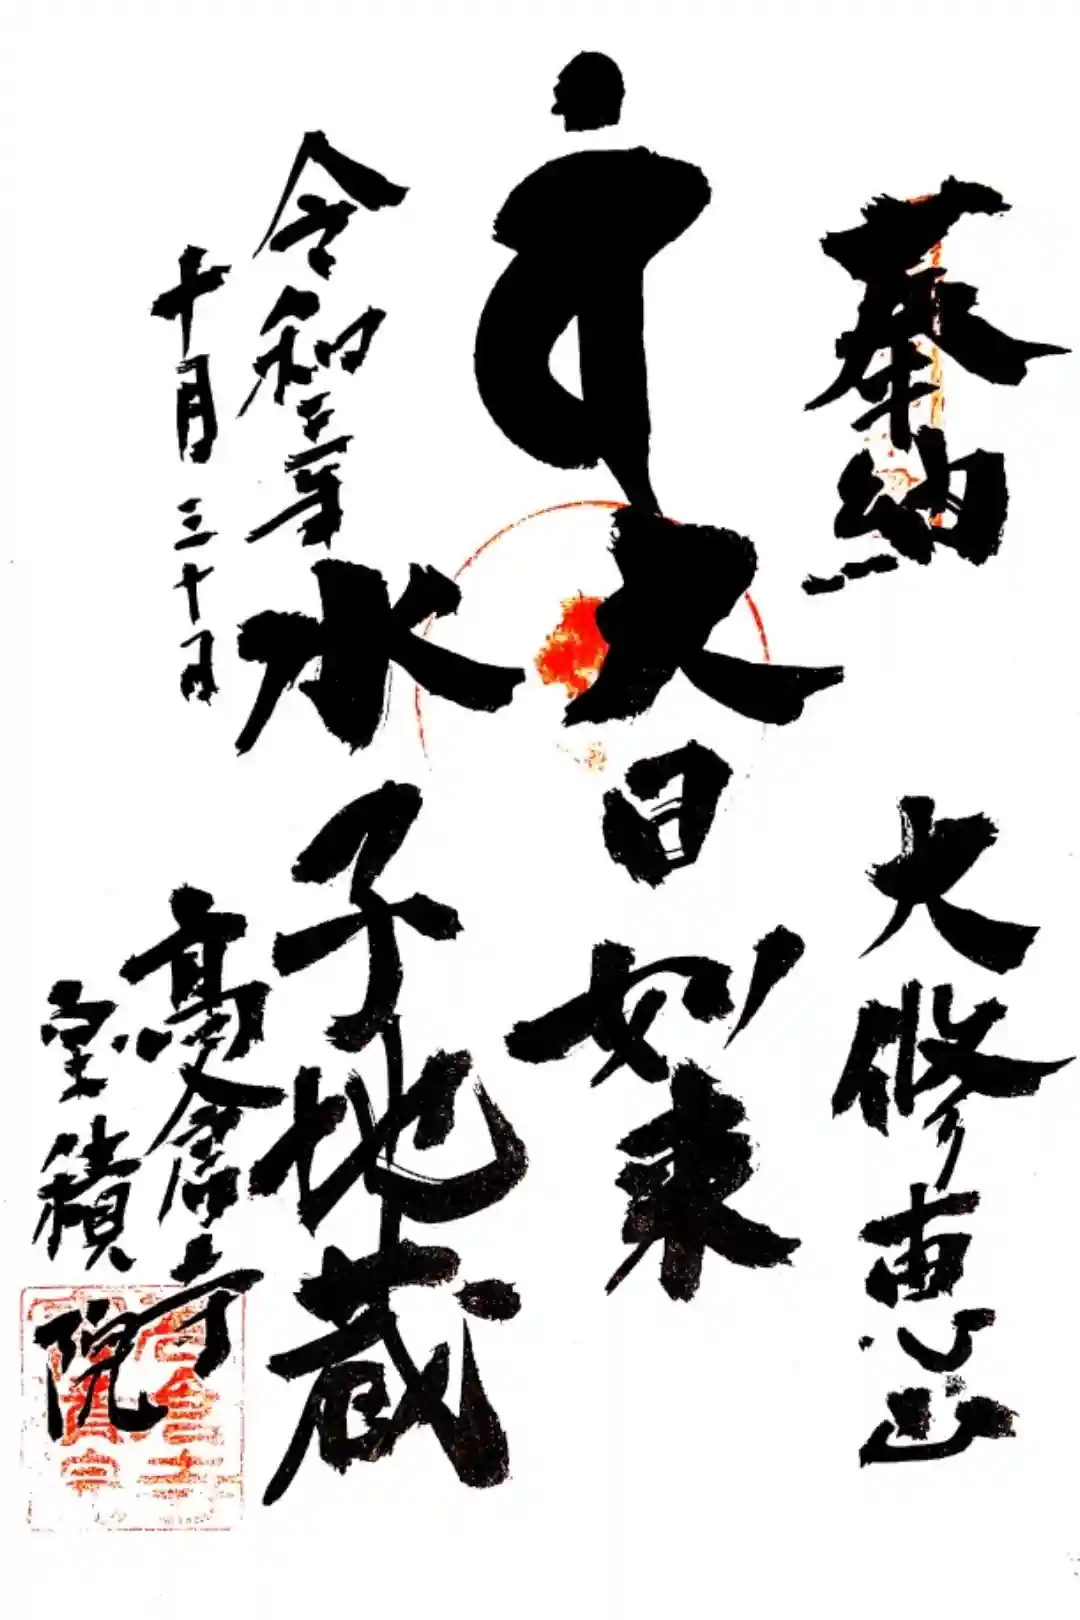 奉納 大修恵山
𑖪𑖽 大日如来
水子地蔵
令和三年
十月三十日
高倉寺
宝積院